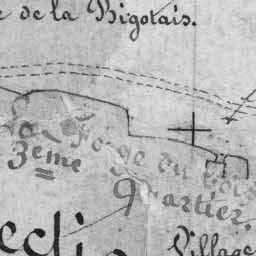 de la Bigotais.
La Forge du Bois
3eme
Quartier.
Village